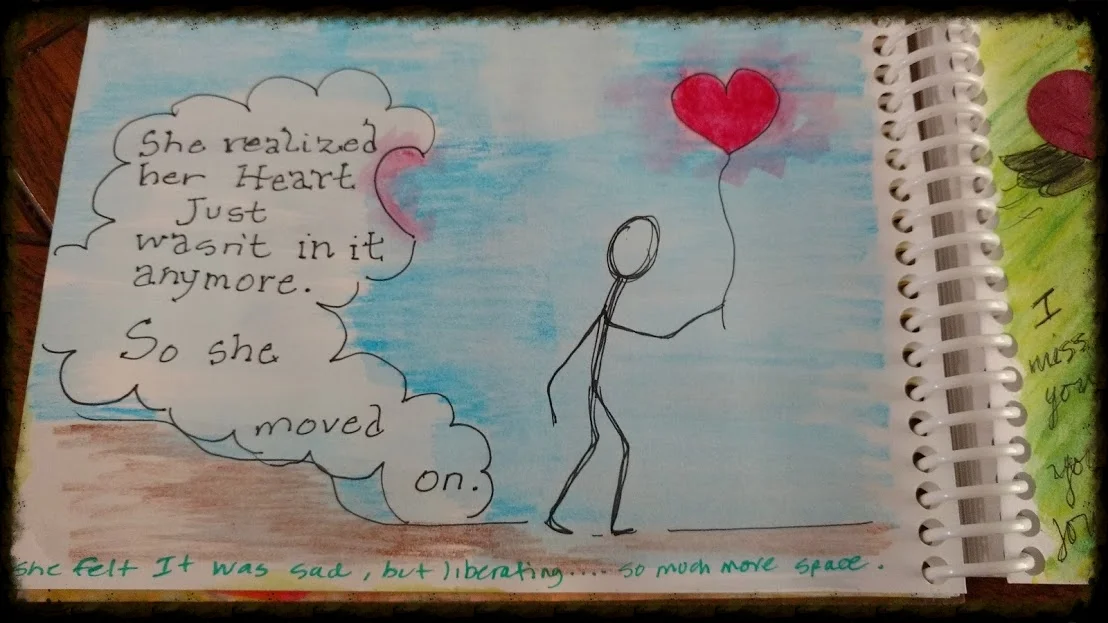 She realized
her Heart
Just
wasn't in it
anymore.
So she
moved
on.
she felt It was sad, but liberating.... so much more space.
I
miss
you